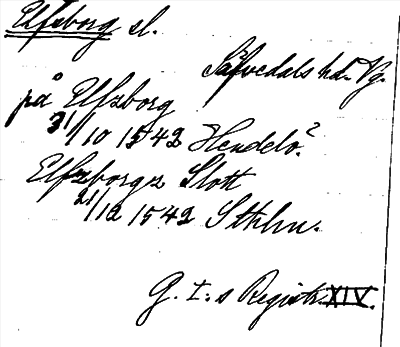 Elfzborg sl.
Säfvedals hd. Vg.
på Elfzborg
31/10 1542 Hendelö?
Elfzborgz Slott
21/12 1542 Sthlm.
G. I:s Registr. XIV.